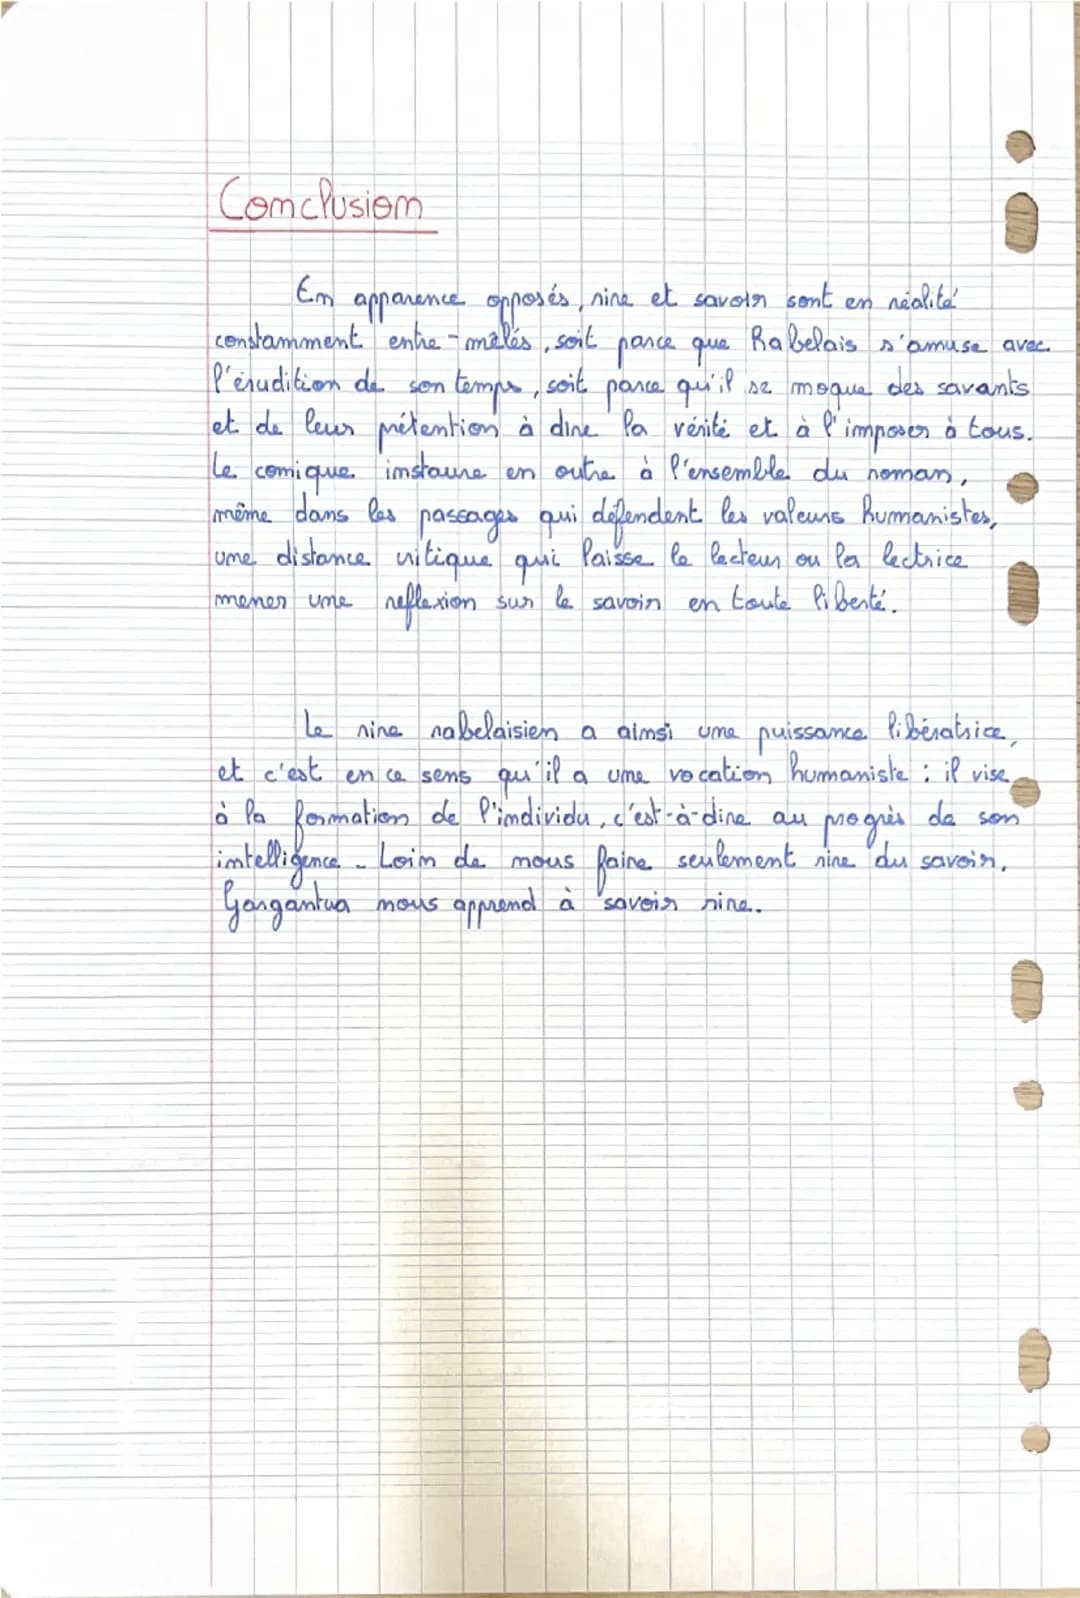 Conclusion
En apparence opposés, rire et savoir sont en réalité
constamment entre-mêlés, soit parce que Rabelais s'amuse avec
l'érudition de son temps, soit parce qu'il se moque des savants
et de leur prétention à dire la vérité et à l'imposer à tous.
Le comique instaure en outre à l'ensemble du roman,
même dans les passages qui défendent les valeurs humanistes,
une distance critique qui laisse le lecteur ou la lectrice
mener une reflexion sur le savoir en toute liberté.
Le rire rabelaisien a ainsi une puissance libératrice,
et c'est en ce sens qu'il a une vocation humaniste : il vise
à la formation de l'individu, c'est-à-dire au progrès de son
intelligence. Loin de nous faire seulement rire du savoir,
Gargantua nous apprend à savoir rire.